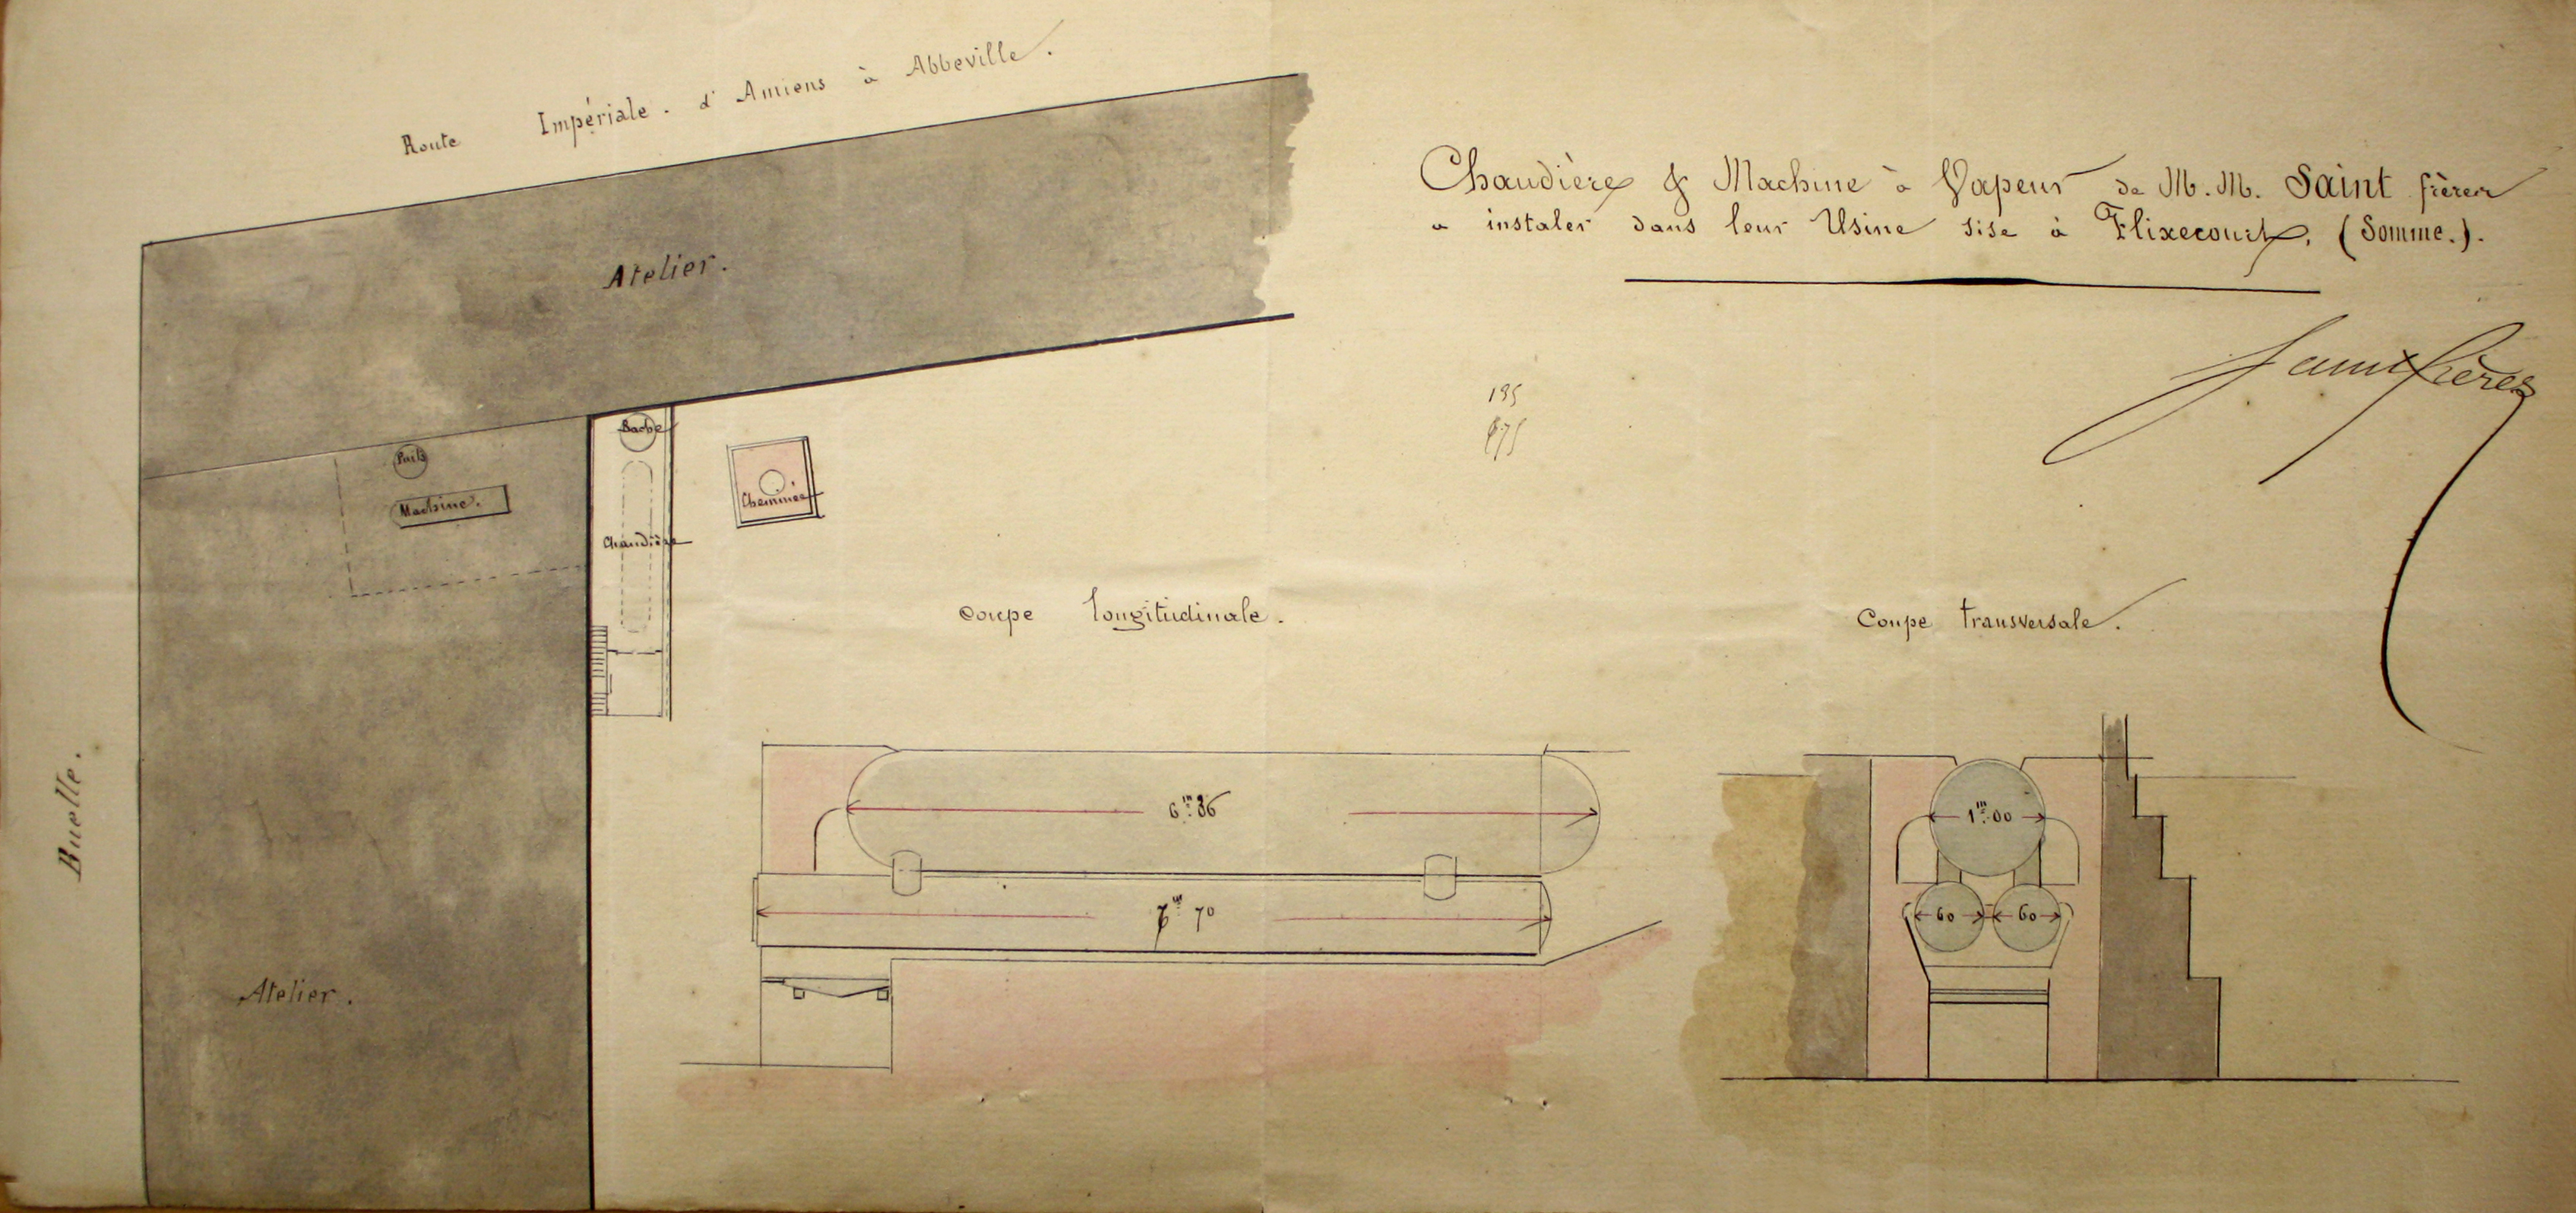 Route Impériale. d'Amiens à Abbeville.
Chaudière & Machine à Vapeur de M.M. Saint frères
a instaler dans leur Usine sise à Flixecourt, (Somme.).
Atelier.
Saint frères
Bache
Puits
Machine.
Cheminée
Chaudière
Coupe longitudinale.
Coupe transversale.
Ruelle.
6m.86
1m.00
70
60
60
Atelier.